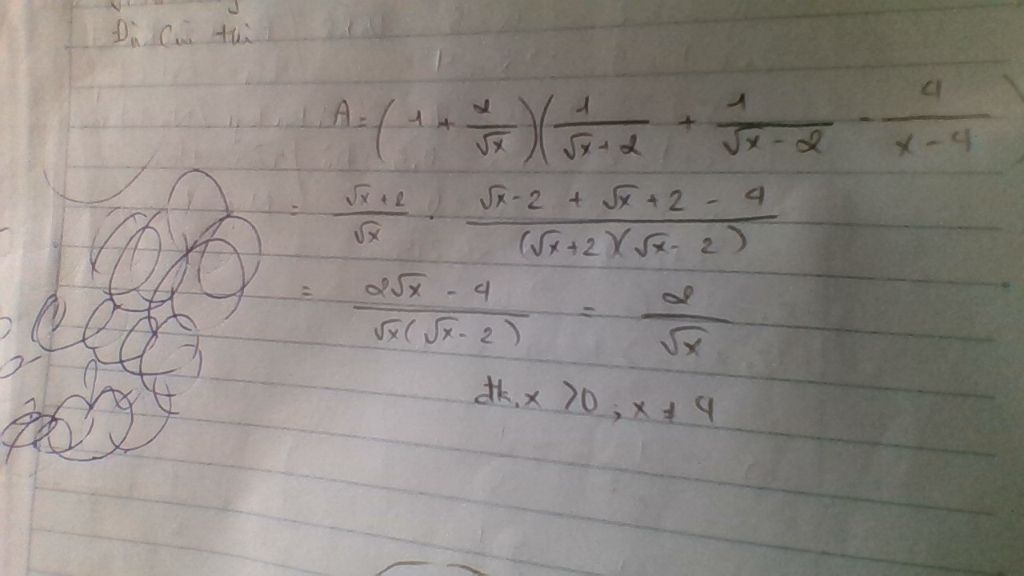 A = ( 1 + 2/√x )( 1/(√x + 2) + 1/(√x - 2) - 4/(x - 4) )
= (√x + 2)/√x . (√x - 2 + √x + 2 - 4)/((√x + 2)(√x - 2))
= (2√x - 4)/(√x(√x - 2)) = 2/√x
đk. x > 0 ; x ≠ 4